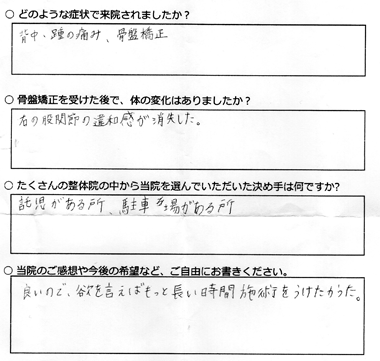 ○ どのような症状で来院されましたか？
背中・踵の痛み、骨盤矯正
○ 骨盤矯正を受けた後で、体の変化はありましたか？
右の股関節の違和感が消失した。
○ たくさんの整体院の中から当院を選んでいただいた決め手は何ですか?
託児がある所、駐車場がある所
○ 当院のご感想や今後の希望など、ご自由にお書きください。
良いので、欲を言えばもっと長い時間施術をうけたかった。